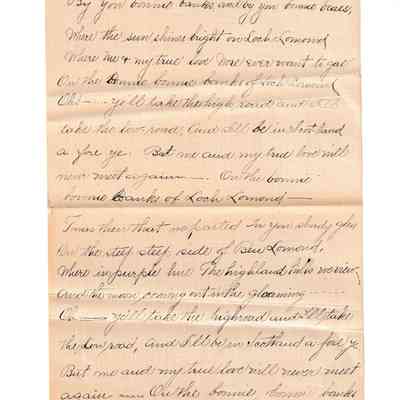 By yon bonnie banks, and by yon bonnie braes,
Where the sun shines bright on Loch Lomond
Where me & my true love were ever want to gae
On the bonnie bonnie banks of Loch Lomond
Oh! — ye'll take the high road and I'll
take the low road, And I'll be in Scotland
a fore ye. But me and my true love will
never meet again — On the bonnie
bonnie banks of Loch Lomond —
Twas ther that we parted In yon shady glen
On the steep steep side of Ben Lomond,
Where in purple hue The highland hills we view
And the moon coming out in the gloaming
Oh — ye'll take the highroad and I'll take
the low road, And I'll be in Scotland a fore ye
But me and my true love will never meet
again — On the bonnie bonnie banks